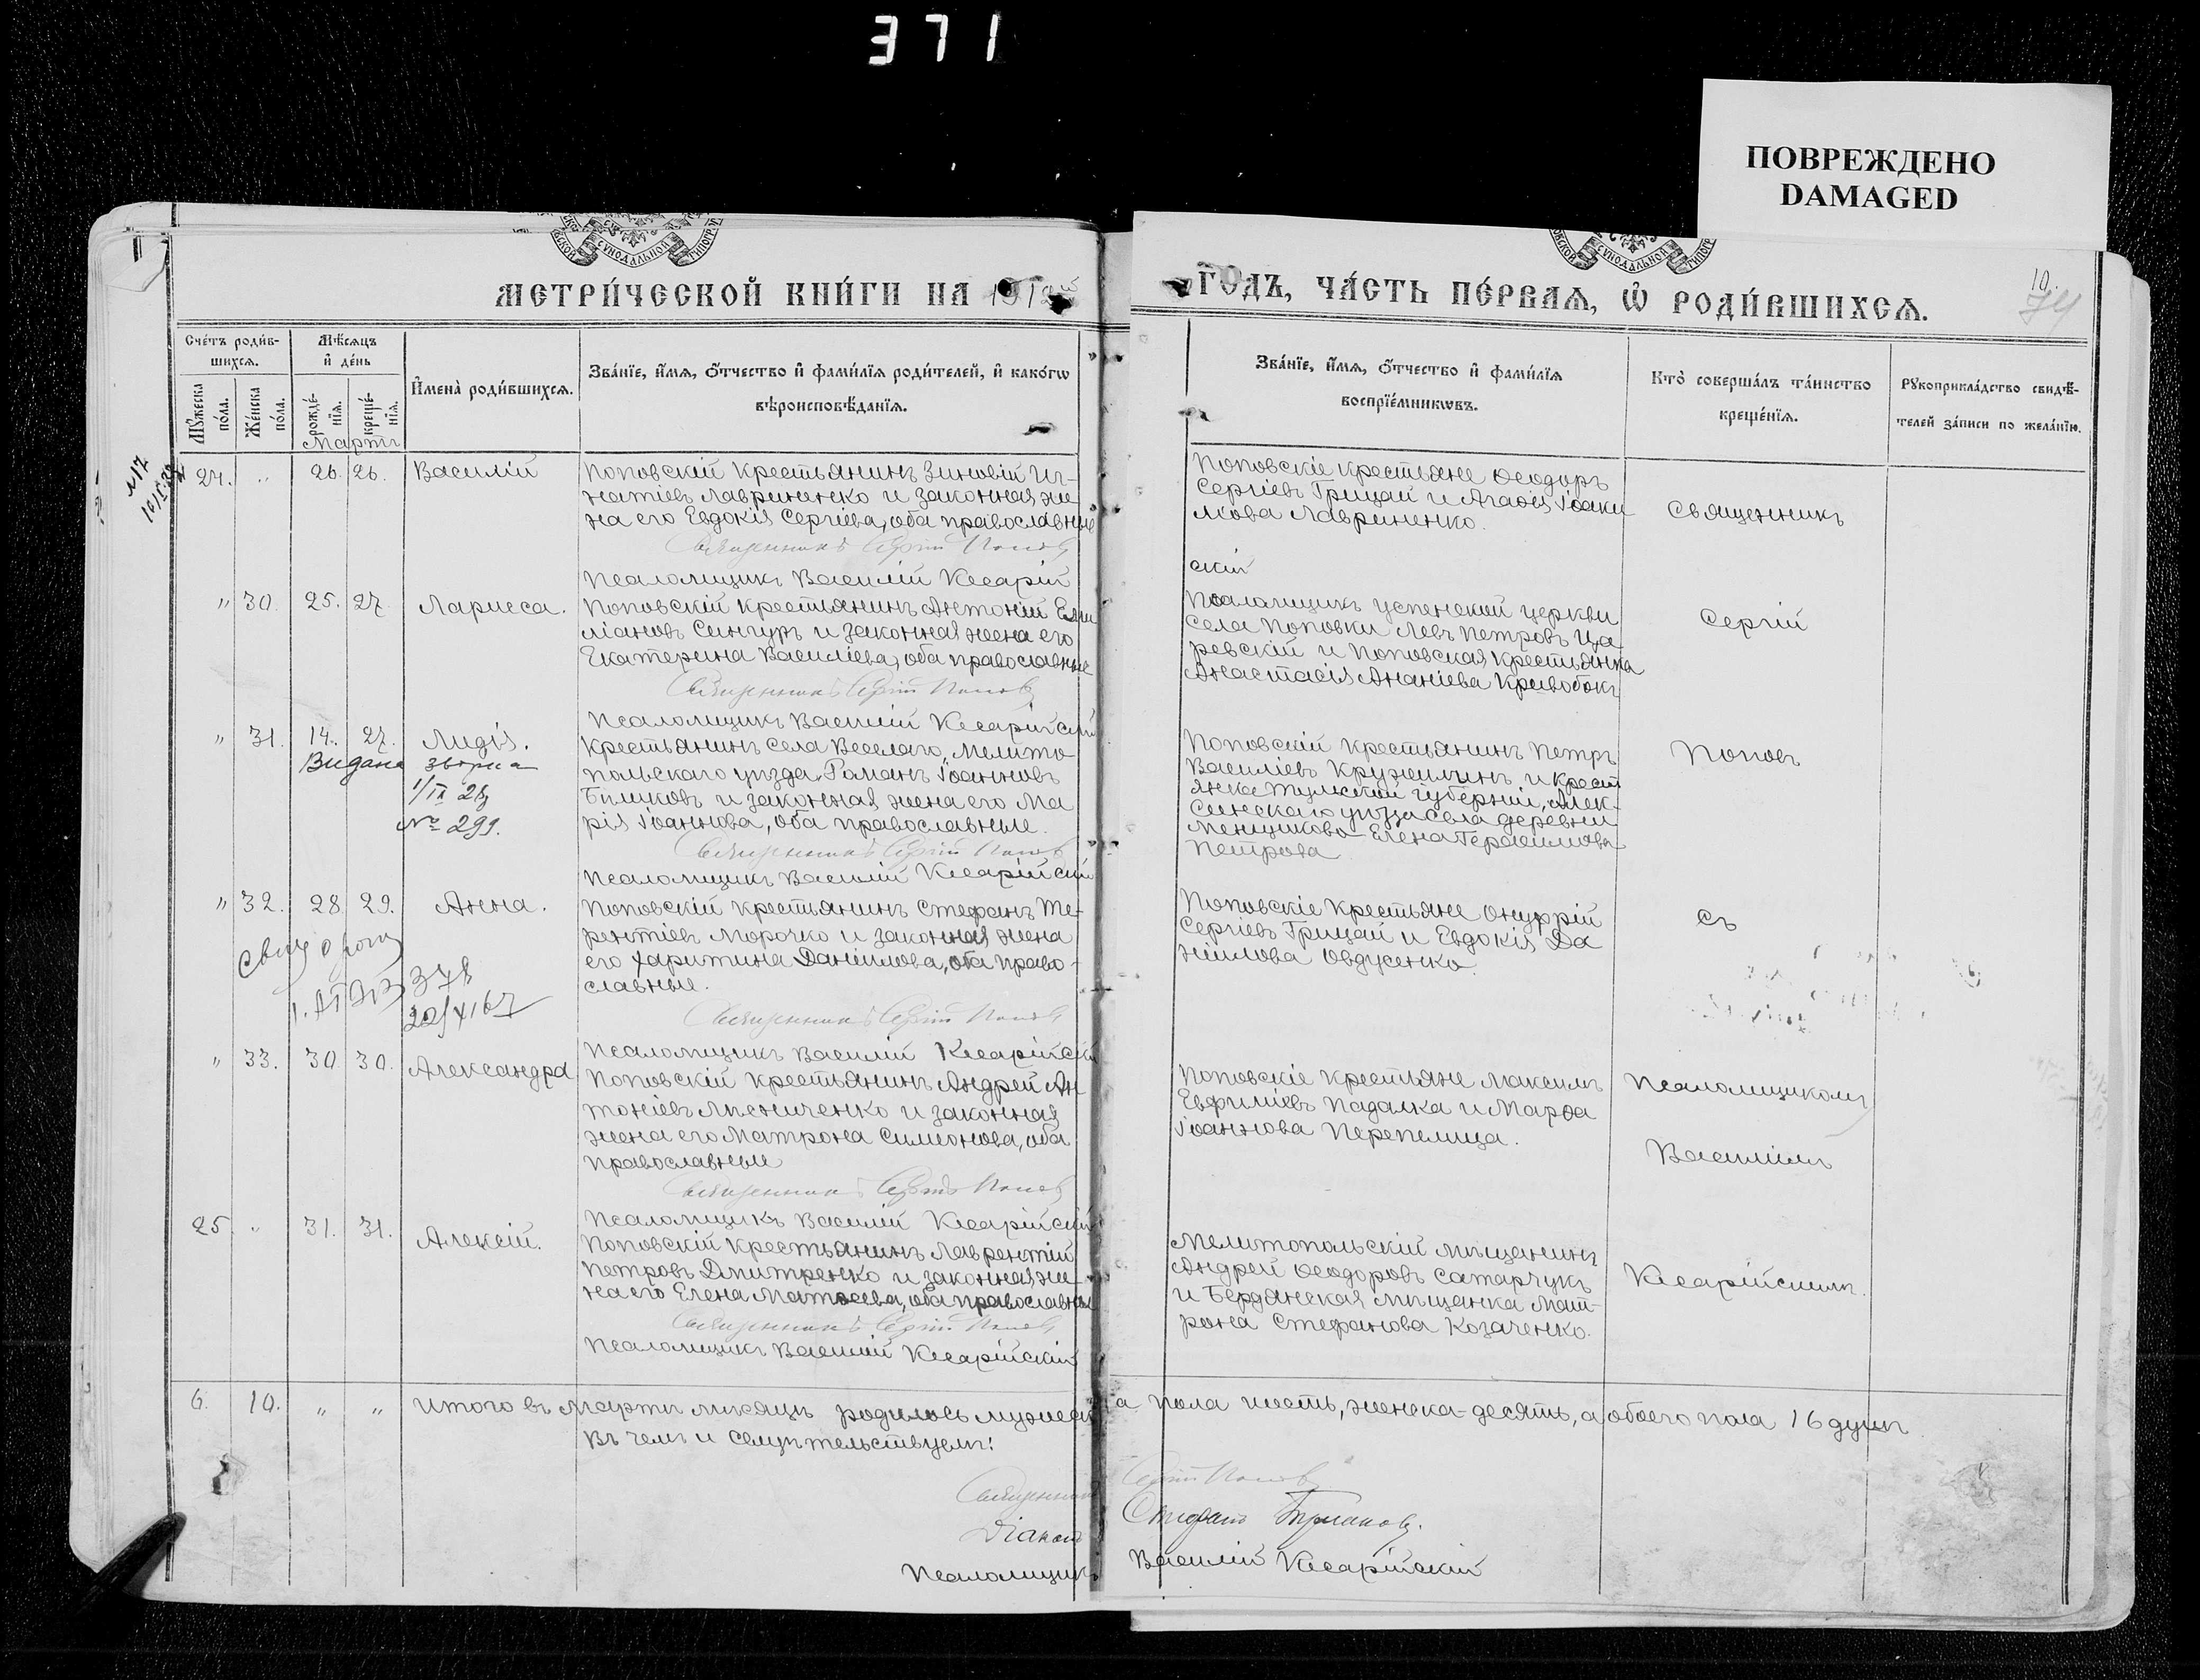 371
ПОВРЕЖДЕНО
DAMAGED
СУНОДАЛЬНОЙ
СУНОДАЛЬНОЙ
МЕТРИ́ЧЕСКОЙ КНИ́ГИ НА 1912й
ГО́ДЪ, ЧА́СТЬ ПЕ́РВАѦ, Ѡ҆ РОДИ́ВШИХСѦ.
10.
Сче́тъ роди́в-
шихсѧ.
Мꙋжеска по́ла.
Же́нска по́ла.
Мѣ́сѧцъ
и҆ де́нь
рожде́-
нїѧ.
креще́-
нїѧ.
Мартъ
И҆мена̀ роди́вшихсѧ.
Зва́нїе, и҆́мѧ, ѻ҆́тчество и҆ фами́лїѧ роди́телей, и҆ како́гѡ
вѣроисповѣ́данїѧ.
Зва́нїе, и҆́мѧ, ѻ҆́тчество и҆ фами́лїѧ
воспрїе́мникѡвъ.
Кто̀ соверша́лъ та́инство
креще́нїѧ.
Рꙋкоприкла́дство свидѣ́-
телей за́писи по жела́нїю.
№17
24. " 26. 26. Василій
Поповскій крестьянинъ Зиновій Иг-
натіевъ Лавриненко и законная же-
на его Евдокія Сергіева, оба православные
Священникъ Сергій Поповъ
Псаломщикъ Василій Кесарій
скій
Поповскіе крестьяне Ѳеодоръ
Сергіевъ Грицай и Агаѳія Іоаки
мова Лавриненко.
Священникъ
" 30. 25. 27. Лариса.
Поповскій крестьянинъ Антоній Еми
ліановъ Сингуръ и законная жена его
Екатерина Василіева, оба православные
Священникъ Сергій Поповъ
Псаломщикъ Василій Кесарійскій
Псаломщикъ Успенской церкви
села Поповки Левъ Петровъ Ца
ревскій и Поповская крестьянка
Анастасія Ананіева Кривобокъ
Сергій
" 31. 14. 27. Лидія.
Видана
1/IX 28
№ 299.
Крестьянинъ села Веселаго, Мелито
польскаго уѣзда, Романъ Іоанновъ
Биликовъ и законная жена его Ма
рія Іоаннова, оба православные.
Священникъ Сергій Поповъ
Псаломщикъ Василій Кесарійскій
Поповскій крестьянинъ Петръ
Василіевъ Кружилинъ и крест
янка Тульской губерніи, Алек-
синскаго уѣзда села деревни
Меньшиково Елена Герасимова
Петрова
Поповъ
" 32. 28. 29. Анна.
378
20/XI 67
Поповскій крестьянинъ Стефанъ Те-
рентіевъ Морочко и законная жена
его Харитина Даніилова, оба право-
славные.
Священникъ Сергій Поповъ
Псаломщикъ Василій Кесарійскій
Поповскіе крестьяне Онуфрій
Сергіевъ Грицай и Евдокія Да
ніилова Овдусенко.
съ
" 33. 30. 30. Александра
Поповскій крестьянинъ Андрей Ан
тоніевъ Лисниченко и законная
жена его Матрона Симонова, оба
православные
Священникъ Сергій Поповъ
Псаломщикъ Василій Кесарійскій
Поповскіе крестьяне Максимъ
Евфиміевъ Падалка и Марѳа
Іоаннова Перепелица.
Псаломщикомъ
Василіемъ
25. " 31. 31. Алексій.
Поповскій крестьянинъ Лаврентій
Петровъ Дмитренко и законная же-
на его Елена Матѳеева, оба православные
Священникъ Сергій Поповъ
Псаломщикъ Василій Кесарійскій
Мелитопольскій мѣщанинъ
Андрей Ѳеодоровъ Сатарчукъ
и Бердянская мѣщанка Мат-
рона Стефанова Козаченко.
Кесарійскимъ.
6. 10. " " Итого въ Мартѣ мѣсяцѣ родилось мужеска пола шесть, женска-десять, а обоего пола 16 душъ
Въ чемъ и свидѣтельствуемъ:
Священникъ Сергій Поповъ
Діаконъ
Псаломщикъ Василій Кесарійскій